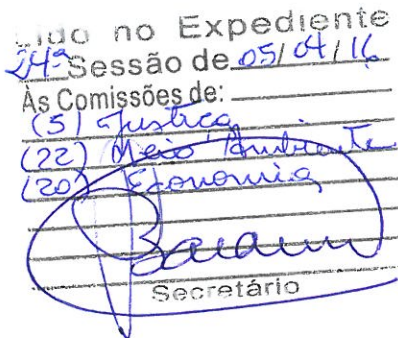 Lido no Expediente
24ª Sessão de 05/04/16
Às Comissões de:
(5) Justiça
(22) Meio Ambiente
(20) Economia
Secretário